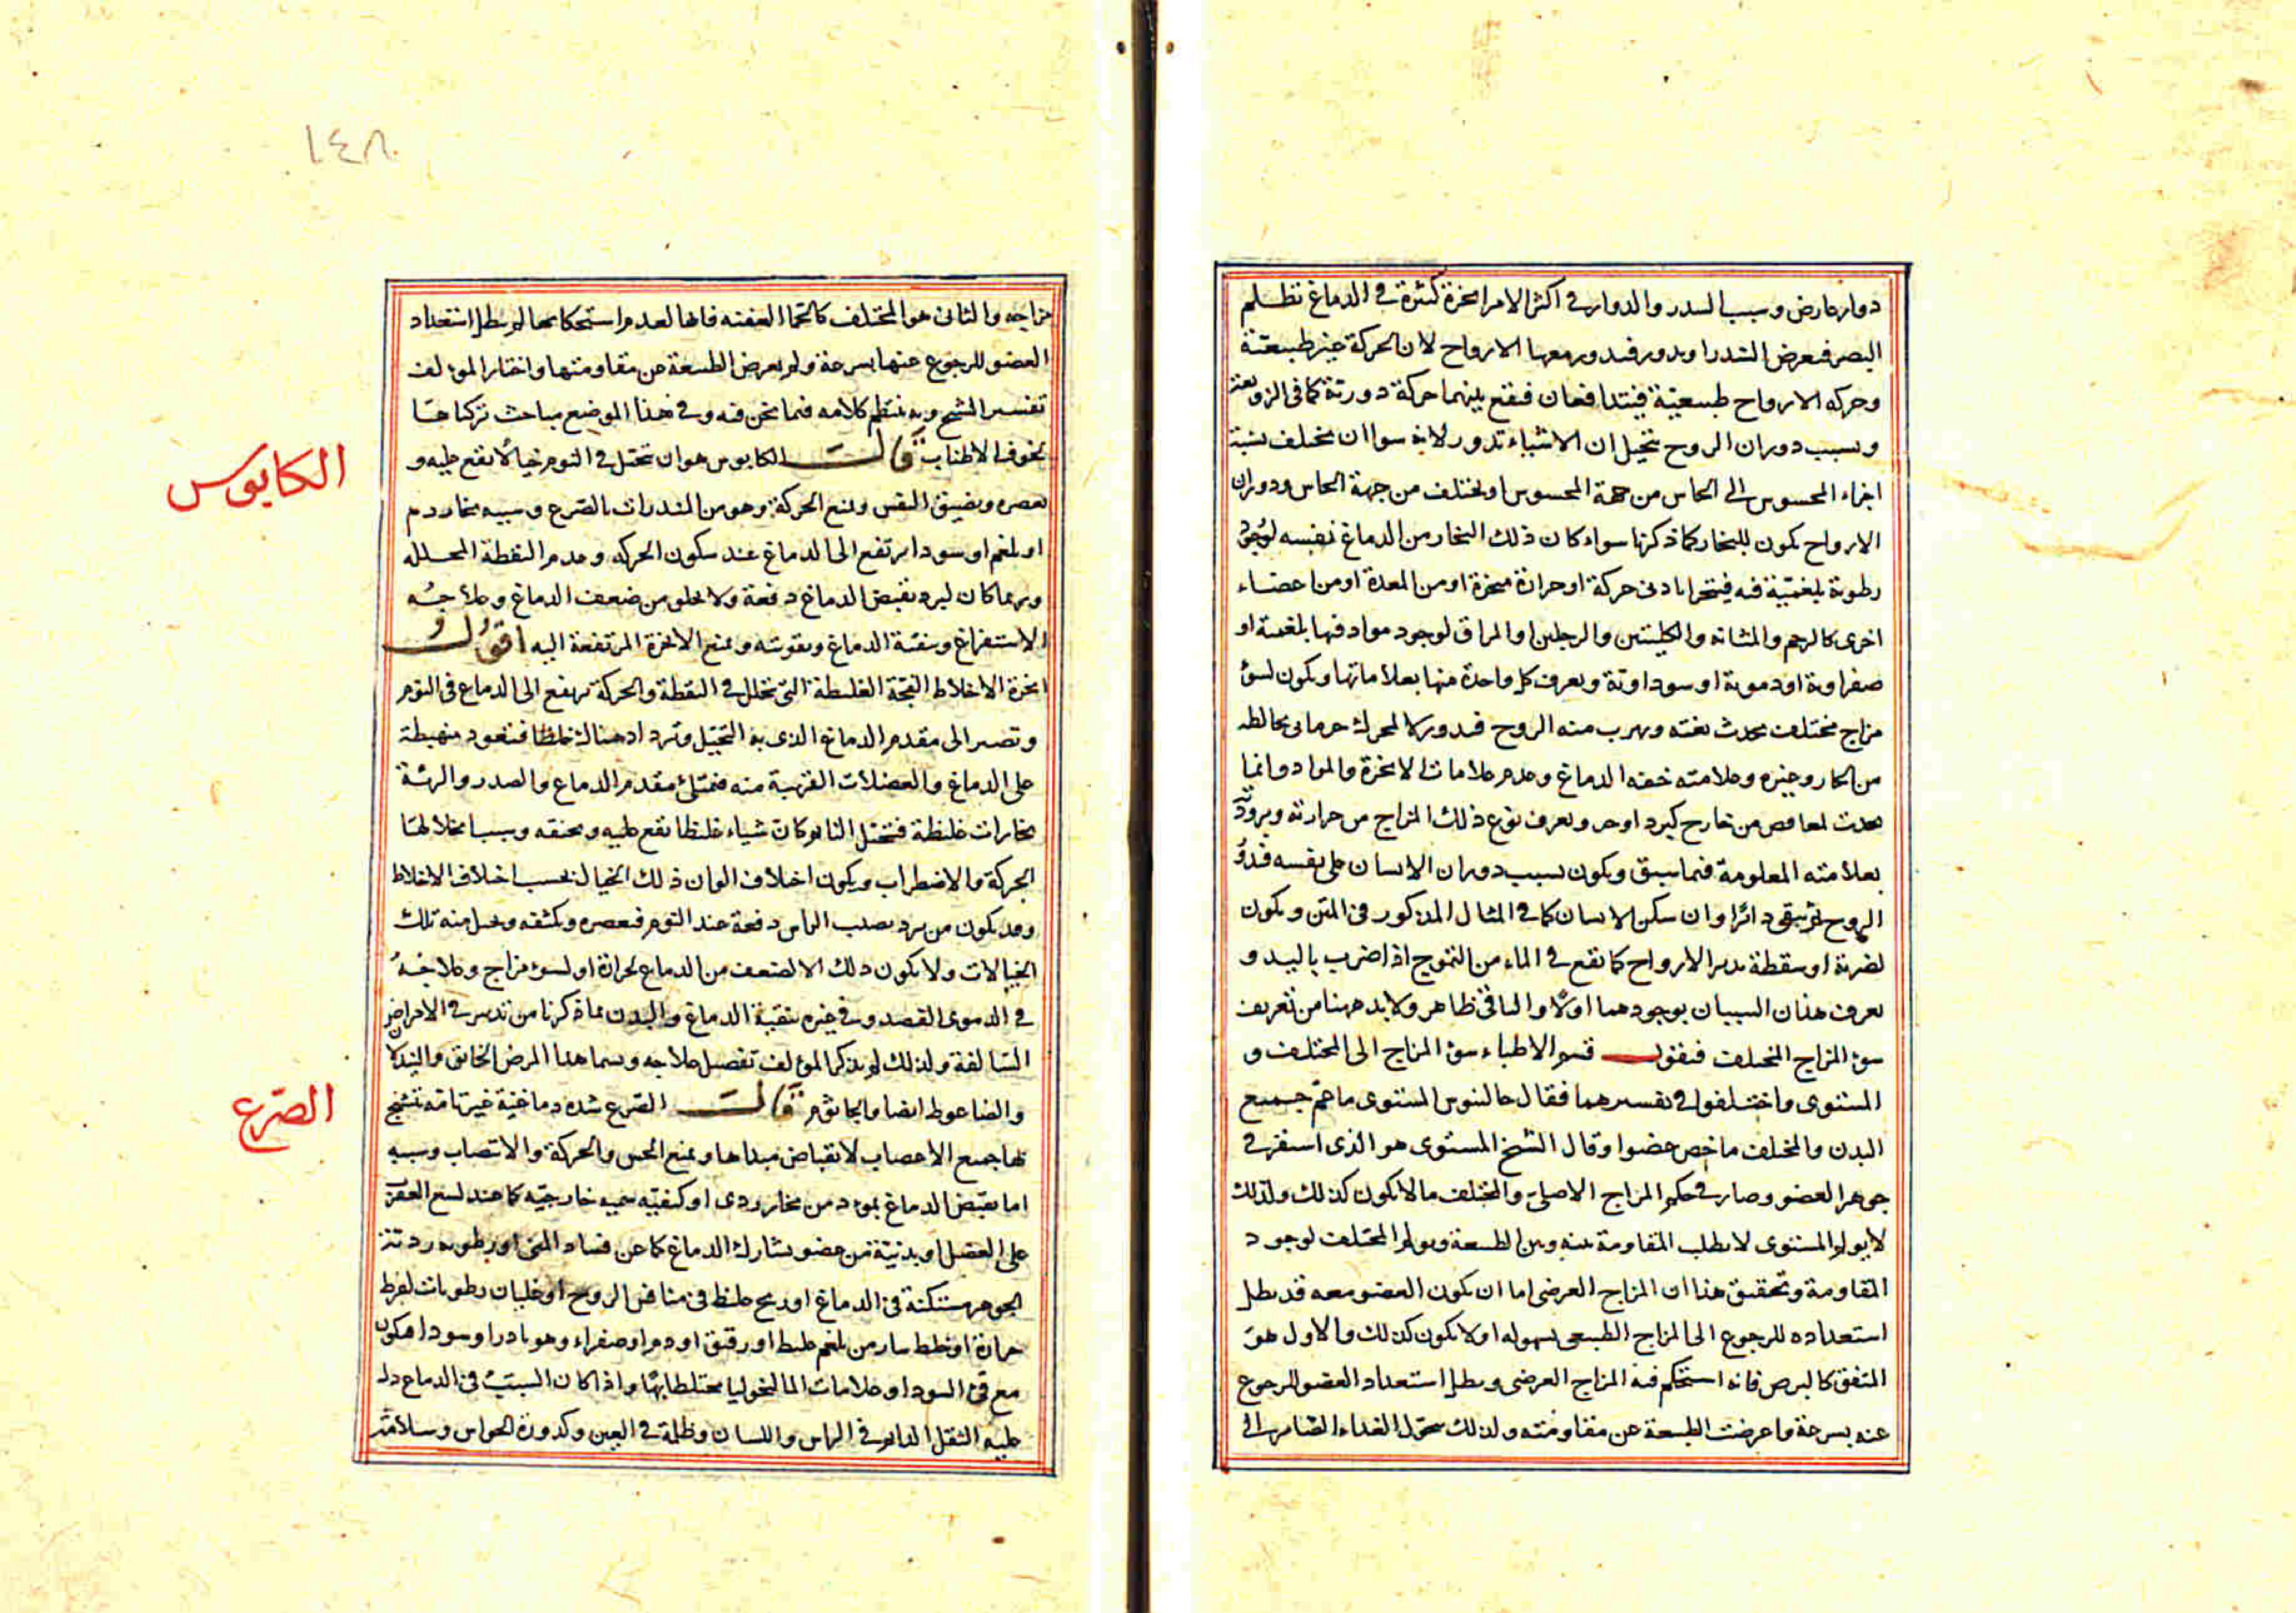 دوار عارض وسبب السدر والدوار في اكثر الامر ابخرة كثيرة في الدماغ تظلم
البصر فيعرض السدر او يدور فيدور معها الارواح لان الحركة غير طبيعية
وحركه الارواح طبيعية فيتدافعان فيقع بينهما حركة دورية كما في الزوبعة
وبسبب دوران الروح يتخيل ان الاشياء تدور لانه سوا ان يختلف نسبة
اجزاء المحسوس الى الحاس من جهة المحسوس او يختلف من جهة الحاس ودوران
الارواح يكون للبخار كما ذكرنا سواء كان ذلك البخار من الدماغ نفسه لوجود
رطوبة بلغمية فيه فيتبخر بادنى حركة او حرارة مبخرة او من المعدة او من اعضاء
اخرى كالرحم والمثانه والكليتين والرجلين او المراق لوجود مواد فيها بلغمية او
صفراوية او دموية او سوداوية ويعرف كل واحدة منها بعلاماتها ويكون لسوء
مزاج مختلف يحدث بغته ويهرب منه الروح فيدور
من الحار وغيره وعلامته خفه الدماغ وعدم علامات الابخرة والمواد وانما
يحدث من خارج كبرد او حر ويعرف نوع ذلك المزاج من حرارته وبرودته
بعلامته المعلومة فيما سبق ويكون بسبب دوران الانسان على نفسه فيدور
الروح ثم يبقى دائرا وان سكن الانسان كما في المثال المذكور في المتن ويكون
لضربة او سقطة يدير الارواح كما يقع في الماء من التموج اذا ضرب باليد و
يعرف هذان السببان بوجودهما اولا والباقي ظاهر ولا بد ههنا من تعريف
سوء المزاج المختلف فنقول قسم الاطباء سوء المزاج الى المختلف و
المستوى واختلفوا في تفسيرهما فقال جالينوس المستوى ما عم جميع
البدن والمختلف ما خص عضوا وقال الشيخ المستوى هو الذى استقر في
جوهر العضو وصار في حكم المزاج الاصلي والمختلف ما لا يكون كذلك ولذلك
لا يولم المستوى لابطلب المقاومة بينه وبين الطبيعة ويولم المختلف لوجود
المقاومة وتحقيق هذا ان المزاج العرضى اما ان يكون العضو معه قد بطل
استعداده للرجوع الى المزاج الطبيعى بسهوله او لا يكون كذلك والاول هو
المتفق كالبرص فانه استحكم فيه المزاج العرضى وبطل استعداد العضو للرجوع
عنه بسرعة واعرضت الطبيعة عن مقاومته ولذلك يتحول الغذاء الصاير الى
١٤٨
مزاجه والثانى هو المختلف كالحما العفنه فانها لعدم استحكامها لم يبطل استعداد
العضو للرجوع عنها بسرعة ولم يعرض الطبيعة عن مقاومتها واختار المؤلف
تفسير الشيخ وبه ينتظم كلامه فيما نحن فيه وفي هذا الموضع مباحث تركناها
لخوف الاطناب قال الكابوس هو ان يتخيل في النوم خيالا يقع عليه و
يعصره ويضيق النفس ويمنع الحركة وهو من المنذرات بالصرع وسببه بخار دم
او بلغم او سودا يرتفع الى الدماغ عند سكون الحركه وعدم اليقظة المحلله
وربما كان لبرد يقبض الدماغ دفعة ولا يخلو من ضعف الدماغ وعلاجه
الاستفراغ وتنقية الدماغ وتقويته ومنع الابخرة المرتفعة اليه اقول
ابخرة الاخلاط الفجة الغليظة التى تتحلل في اليقظة والحركة ترتفع الى الدماغ في النوم
وتصير الى مقدم الدماغ الذى به التخيل وتزداد هناك غلظا فتعود منهبطة
على الدماغ والعضلات القريبة منه فتمتلئ مقدم الدماغ والصدر والرئة
بخارات غليظة فيتخيل النايم كان شياء غليظا يقع عليه ويخنقه وبسبب
الحركة والاضطراب ويكون اختلاف الوان ذلك الخيال بحسب اختلاف الاخلاط
وقد يكون من برد يصيب الراس دفعة عند النوم فيعصره ويكثفه ويخيل منه تلك
الخيالات ولا يكون ذلك الا لضعف من الدماغ لحرارة او لسوء مزاج وعلاجه
في الدموى الفصد وفي غيره تنقية الدماغ والبدن بما ذكرنا من تدبير في الامراض
السالفة ولذلك لم يذكر المؤلف تفصيل علاجه ويسما هذا المرض الخانق والنيدلان
والضاغوط ايضا والجاثوم قال الصرع سدة دماغية غير تامة تتشنج
لها جميع الاعصاب لانقباض مبداها ويمنع الحس والحركة والانتصاب وسببه
اما يقبض الدماغ بموذ من بخار ردى او كيفية سميه خارجيه كما عند لسع العقرب
على العضل او بدنية من عضو يشارك الدماغ كما عن فساد المنى او رطوبه رديئة
الجوهر مستكنة في الدماغ او ريح غليظ في منافس الروح او غليان رطوبات لفرط
حرارة او خلط سادر من بلغم غليظ او رقيق او دم او صفراء وهو نادر او سودا فيكون
مع قئ السودا وعلامات المالنخوليا مختلطا بها واذا كان السبب في الدماغ دل
عليه الثقل الدايم في الراس واللسان وظلمة في العين وكدورة الحواس وسلامة
الكابوس
الصرع